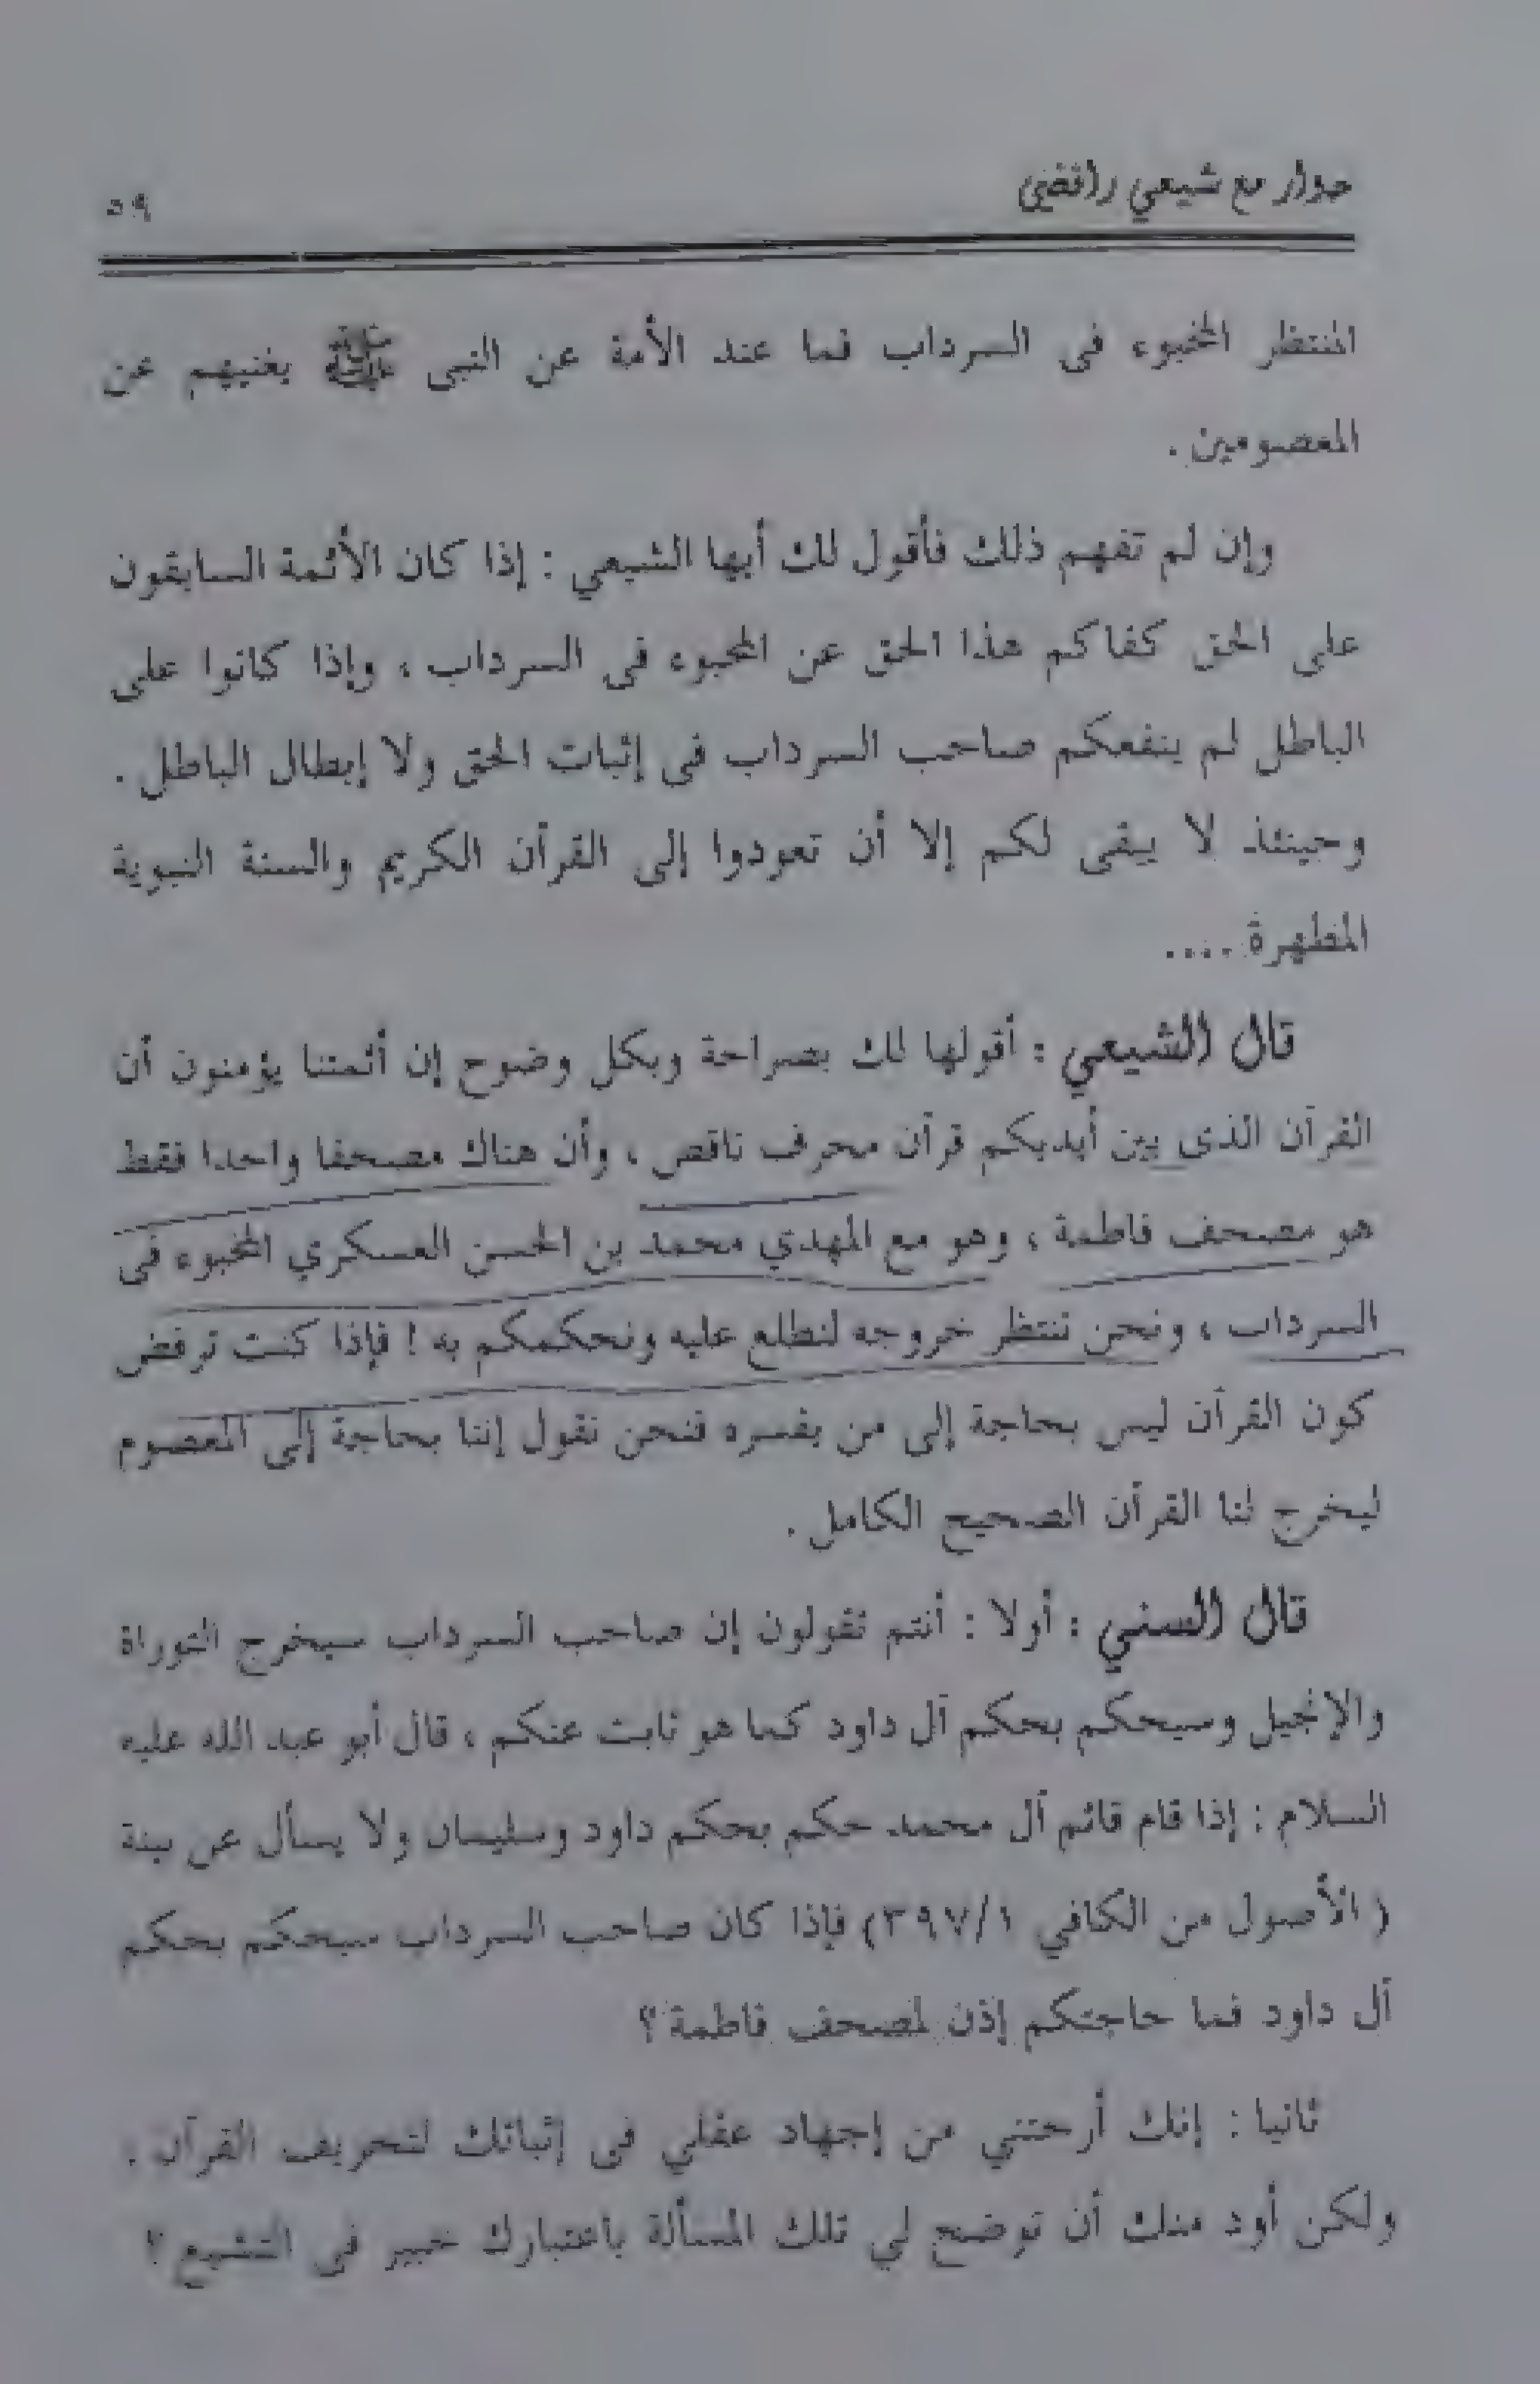 حوار مع شيعي رافضي
٥٩
المنتظر المخبوء فى السرداب فما عند الأمة عن النبى ﷺ يغنيهم عن
المعصومين .
وإن لم تفهم ذلك فأقول لك أيها الشيعي : إذا كان الأئمة السابقون
على الحق كفاكم هذا الحق عن المخبوء فى السرداب ، وإذا كانوا على
الباطل لم ينفعكم صاحب السرداب فى إثبات الحق ولا إبطال الباطل .
وحينئذ لا يبقى لكم إلا أن تعودوا إلى القرآن الكريم والسنة النبوية
المطهرة ....
قال الشيعي : أقولها لك بصراحة وبكل وضوح إن أئمتنا يؤمنون أن
القرآن الذى بين أيديكم قرآن محرف ناقص ، وأن هناك مصحفا واحدا فقط
هو مصحف فاطمة ، وهو مع المهدي محمد بن الحسن العسكري المخبوء فى
السرداب ، ونحن ننتظر خروجه لنطلع عليه ونحكمكم به ! فإذا كنت ترفض
كون القرآن ليس بحاجة إلى من يفسره فنحن نقول إننا بحاجة إلى المعصوم
ليخرج لنا القرآن الصحيح الكامل .
قال السني : أولا : أنتم تقولون إن صاحب السرداب سيخرج التوراة
والإنجيل وسيحكم بحكم آل داود كما هو ثابت عنكم ، قال أبو عبد الله عليه
السلام : إذا قام قائم آل محمد حكم بحكم داود وسليمان ولا يسأل عن بينة
( الأصول من الكافي ٣٩٧/١) فإذا كان صاحب السرداب سيحكم بحكم
آل داود فما حاجتكم إذن لمصحف فاطمة ؟
ثانيا : إنك أرحتني من إجهاد عقلي فى إثباتك لتحريف القرآن .
ولكن أود منك أن توضح لي تلك المسألة باعتبارك خبير فى التشيع ؟